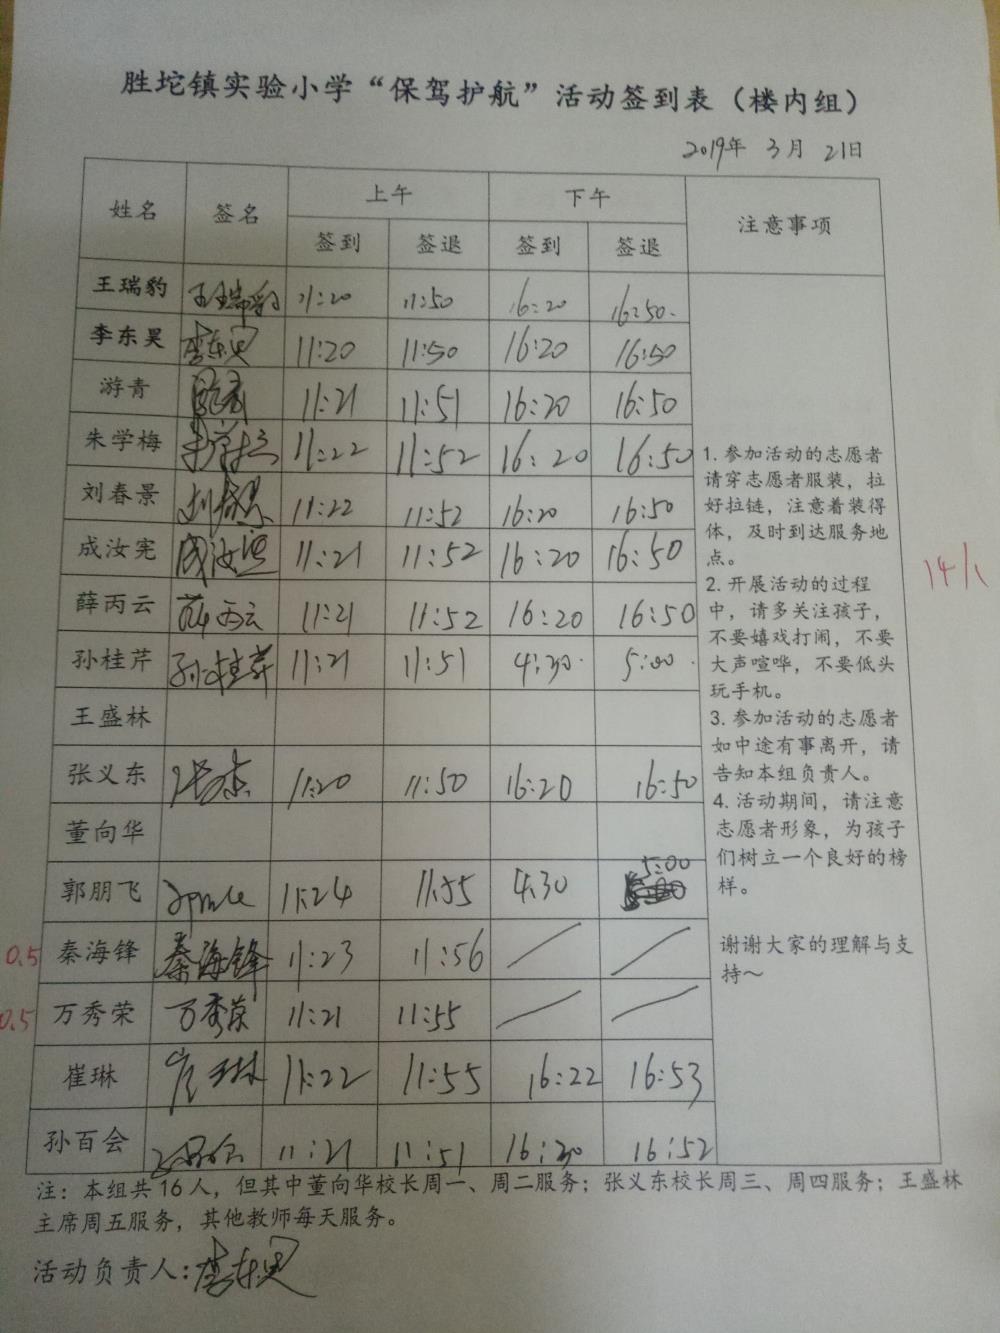 胜坨镇实验小学“保驾护航”活动签到表（楼内组）
2019年 3月 21日
姓名 签名 上午 下午 注意事项
签到 签退 签到 签退
王瑞豹 王瑞豹 11:20 11:50 16:20 16:50.
李东昊 李东昊 11:20 11:50 16:20 16:50
游青 11:21 11:51 16:20 16:50
朱学梅 朱学梅 11:22 11:52 16:20 16:50
刘春景 刘春景 11:22 11:52 16:20 16:50
成汝宪 成汝宪 11:21 11:52 16:20 16:50
薛丙云 薛丙云 11:21 11:52 16:20 16:50
孙桂芹 孙桂芹 11:21 11:51 4:30. 5:00.
王盛林
张义东 11:20 11:50 16:20 16:50
董向华
郭朋飞 11:24 11:55 4:30 5:00
0.5 秦海锋 秦海锋 11:23 11:56
0.5 万秀荣 万秀荣 11:21 11:55
崔琳 崔琳 11:22 11:55 16:22 16:53
孙百会 11:21 11:51 16:20 16:52
1. 参加活动的志愿者
请穿志愿者服装，拉
好拉链，注意着装得
体，及时到达服务地
点。
2. 开展活动的过程
中，请多关注孩子，
不要嬉戏打闹，不要
大声喧哗，不要低头
玩手机。
3. 参加活动的志愿者
如中途有事离开，请
告知本组负责人。
4. 活动期间，请注意
志愿者形象，为孩子
们树立一个良好的榜
样。
谢谢大家的理解与支
持～
注：本组共16人，但其中董向华校长周一、周二服务；张义东校长周三、周四服务；王盛林
主席周五服务，其他教师每天服务。
活动负责人：李东昊